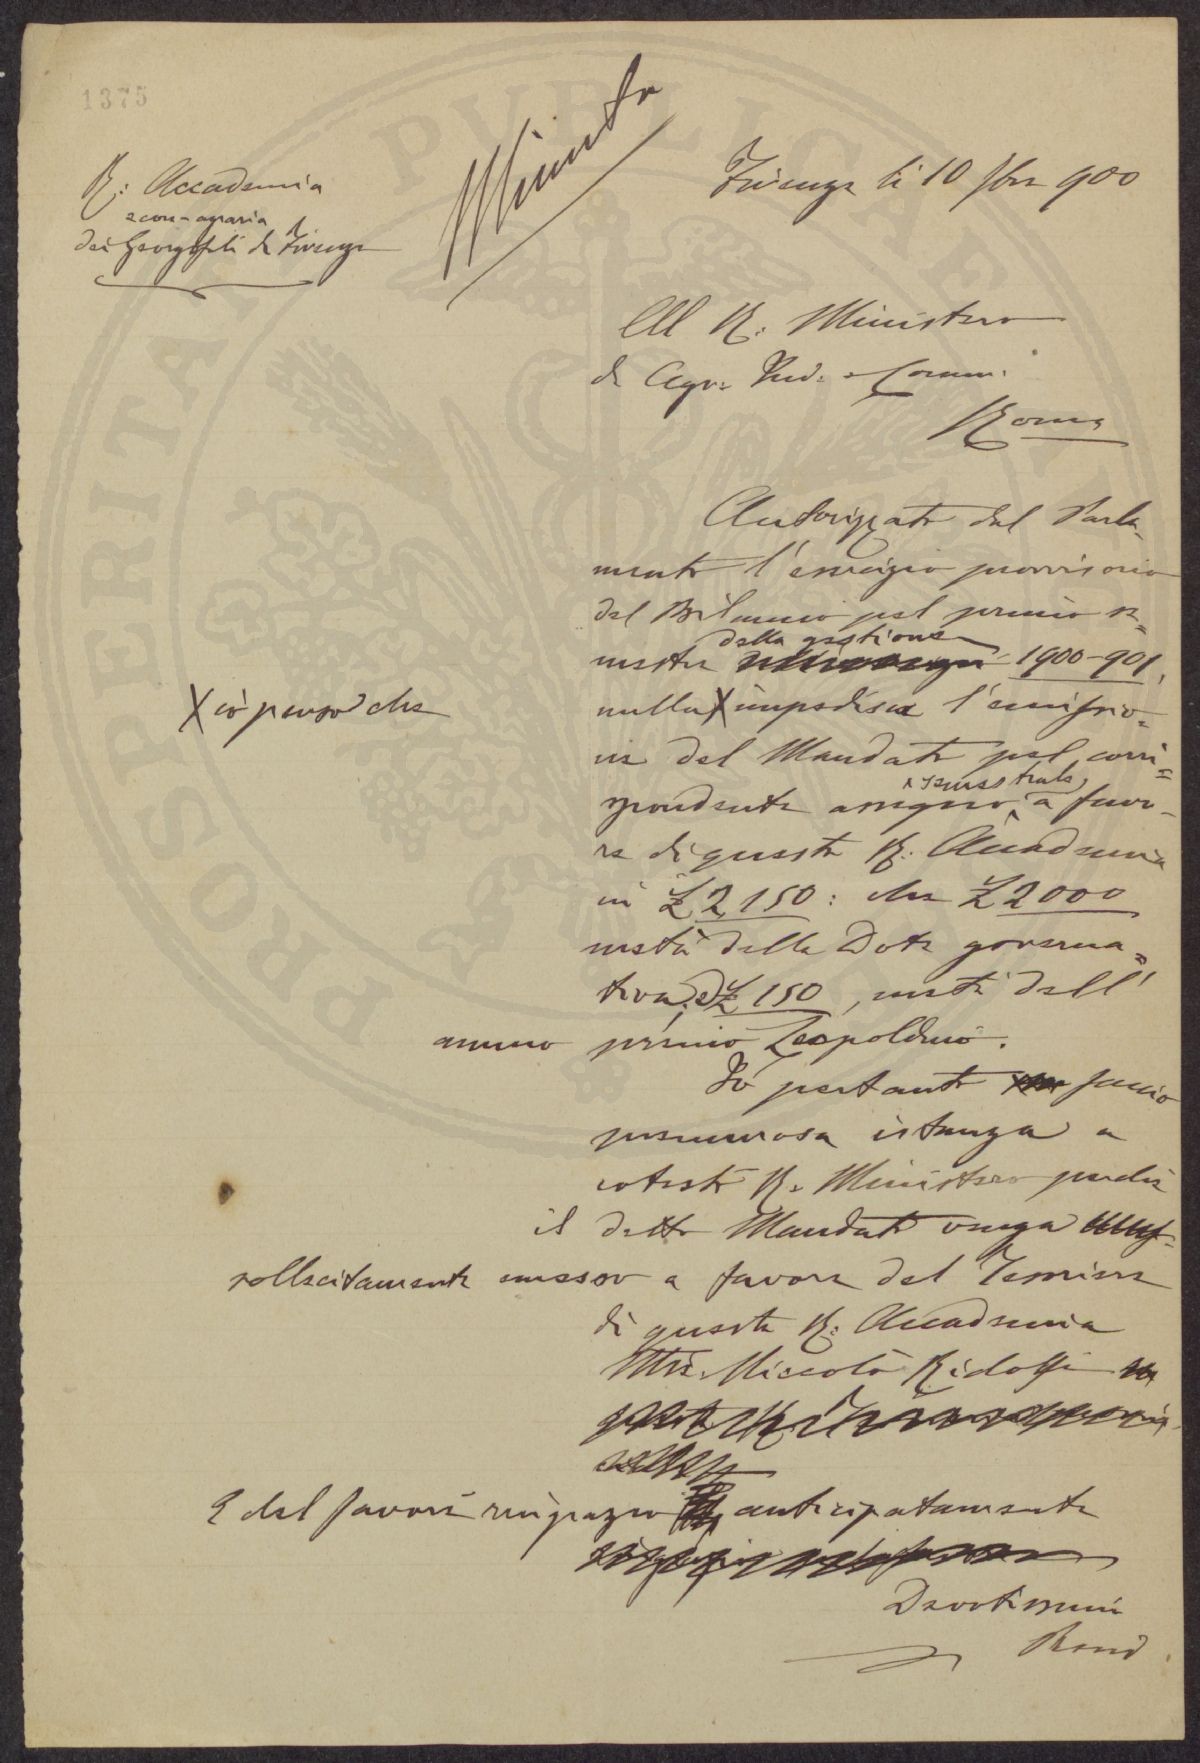 1375
Minuta
R: Accademia
econ-agraria
dei Georgofili di Firenze
Firenze li 10 900
All R: Ministero
di Agr: Ind: e Comm:
Roma
Autorizzato dal Parla-
mento l'esercizio provvisorio
del Bilancio pel primo se=
della gestione
mestre 1900-901,
X ciò penso che
nulla X impedisca l'emissio=
ne del Mandato pel corri=
semestrale
spondente assegno a favo-
re di questa R: Accademia
in £ 2,150: che £ 2000
metà della Dote governa=
tiva, e £ 150, metà dell'
annuo premio Leopoldino.
Io pertanto faccio
premurosa istanza a
cotesto R. Ministero perchè
il detto Mandato venga
sollecitamente emesso a favore del Tesoriere
di questa R: Accademia
Niccolò Ridolfi
E del favore ringrazio anticipatamente
Devotissimo